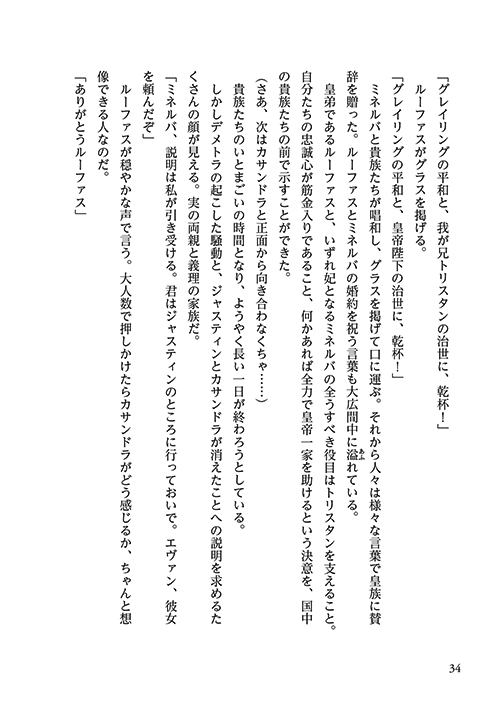 「グレイリングの平和と、我が兄トリスタンの治世に、乾杯！」
　ルーファスがグラスを掲げる。
「グレイリングの平和と、皇帝陛下の治世に、乾杯！」
　ミネルバと貴族たちが唱和し、グラスを掲げて口に運ぶ。それから人々は様々な言葉で皇族に賛
辞を贈った。ルーファスとミネルバの婚約を祝う言葉も大広間中に溢れている。
　皇弟であるルーファスと、いずれ妃となるミネルバの全うすべき役目はトリスタンを支えること。
自分たちの忠誠心が筋金入りであること、何かあれば全力で皇帝一家を助けるという決意を、国中
の貴族たちの前で示すことができた。
（さあ、次はカサンドラと正面から向き合わなくちゃ……）
　貴族たちのいとまごいの時間となり、ようやく長い一日が終わろうとしている。
　しかしデメトラの起こした騒動と、ジャスティンとカサンドラが消えたことへの説明を求めるた
くさんの顔が見える。実の両親と義理の家族だ。
「ミネルバ、説明は私が引き受ける。君はジャスティンのところに行っておいで。エヴァン、彼女
を頼んだぞ」
　ルーファスが穏やかな声で言う。大人数で押しかけたらカサンドラがどう感じるか、ちゃんと想
像できる人なのだ。
「ありがとうルーファス」
34